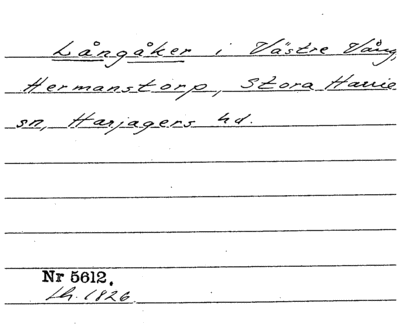 Långåker i Västre Vång,
Hermanstorp, Stora Harrie
sn, Harjagers hd.
Nr 5612.
Lh. 1826.